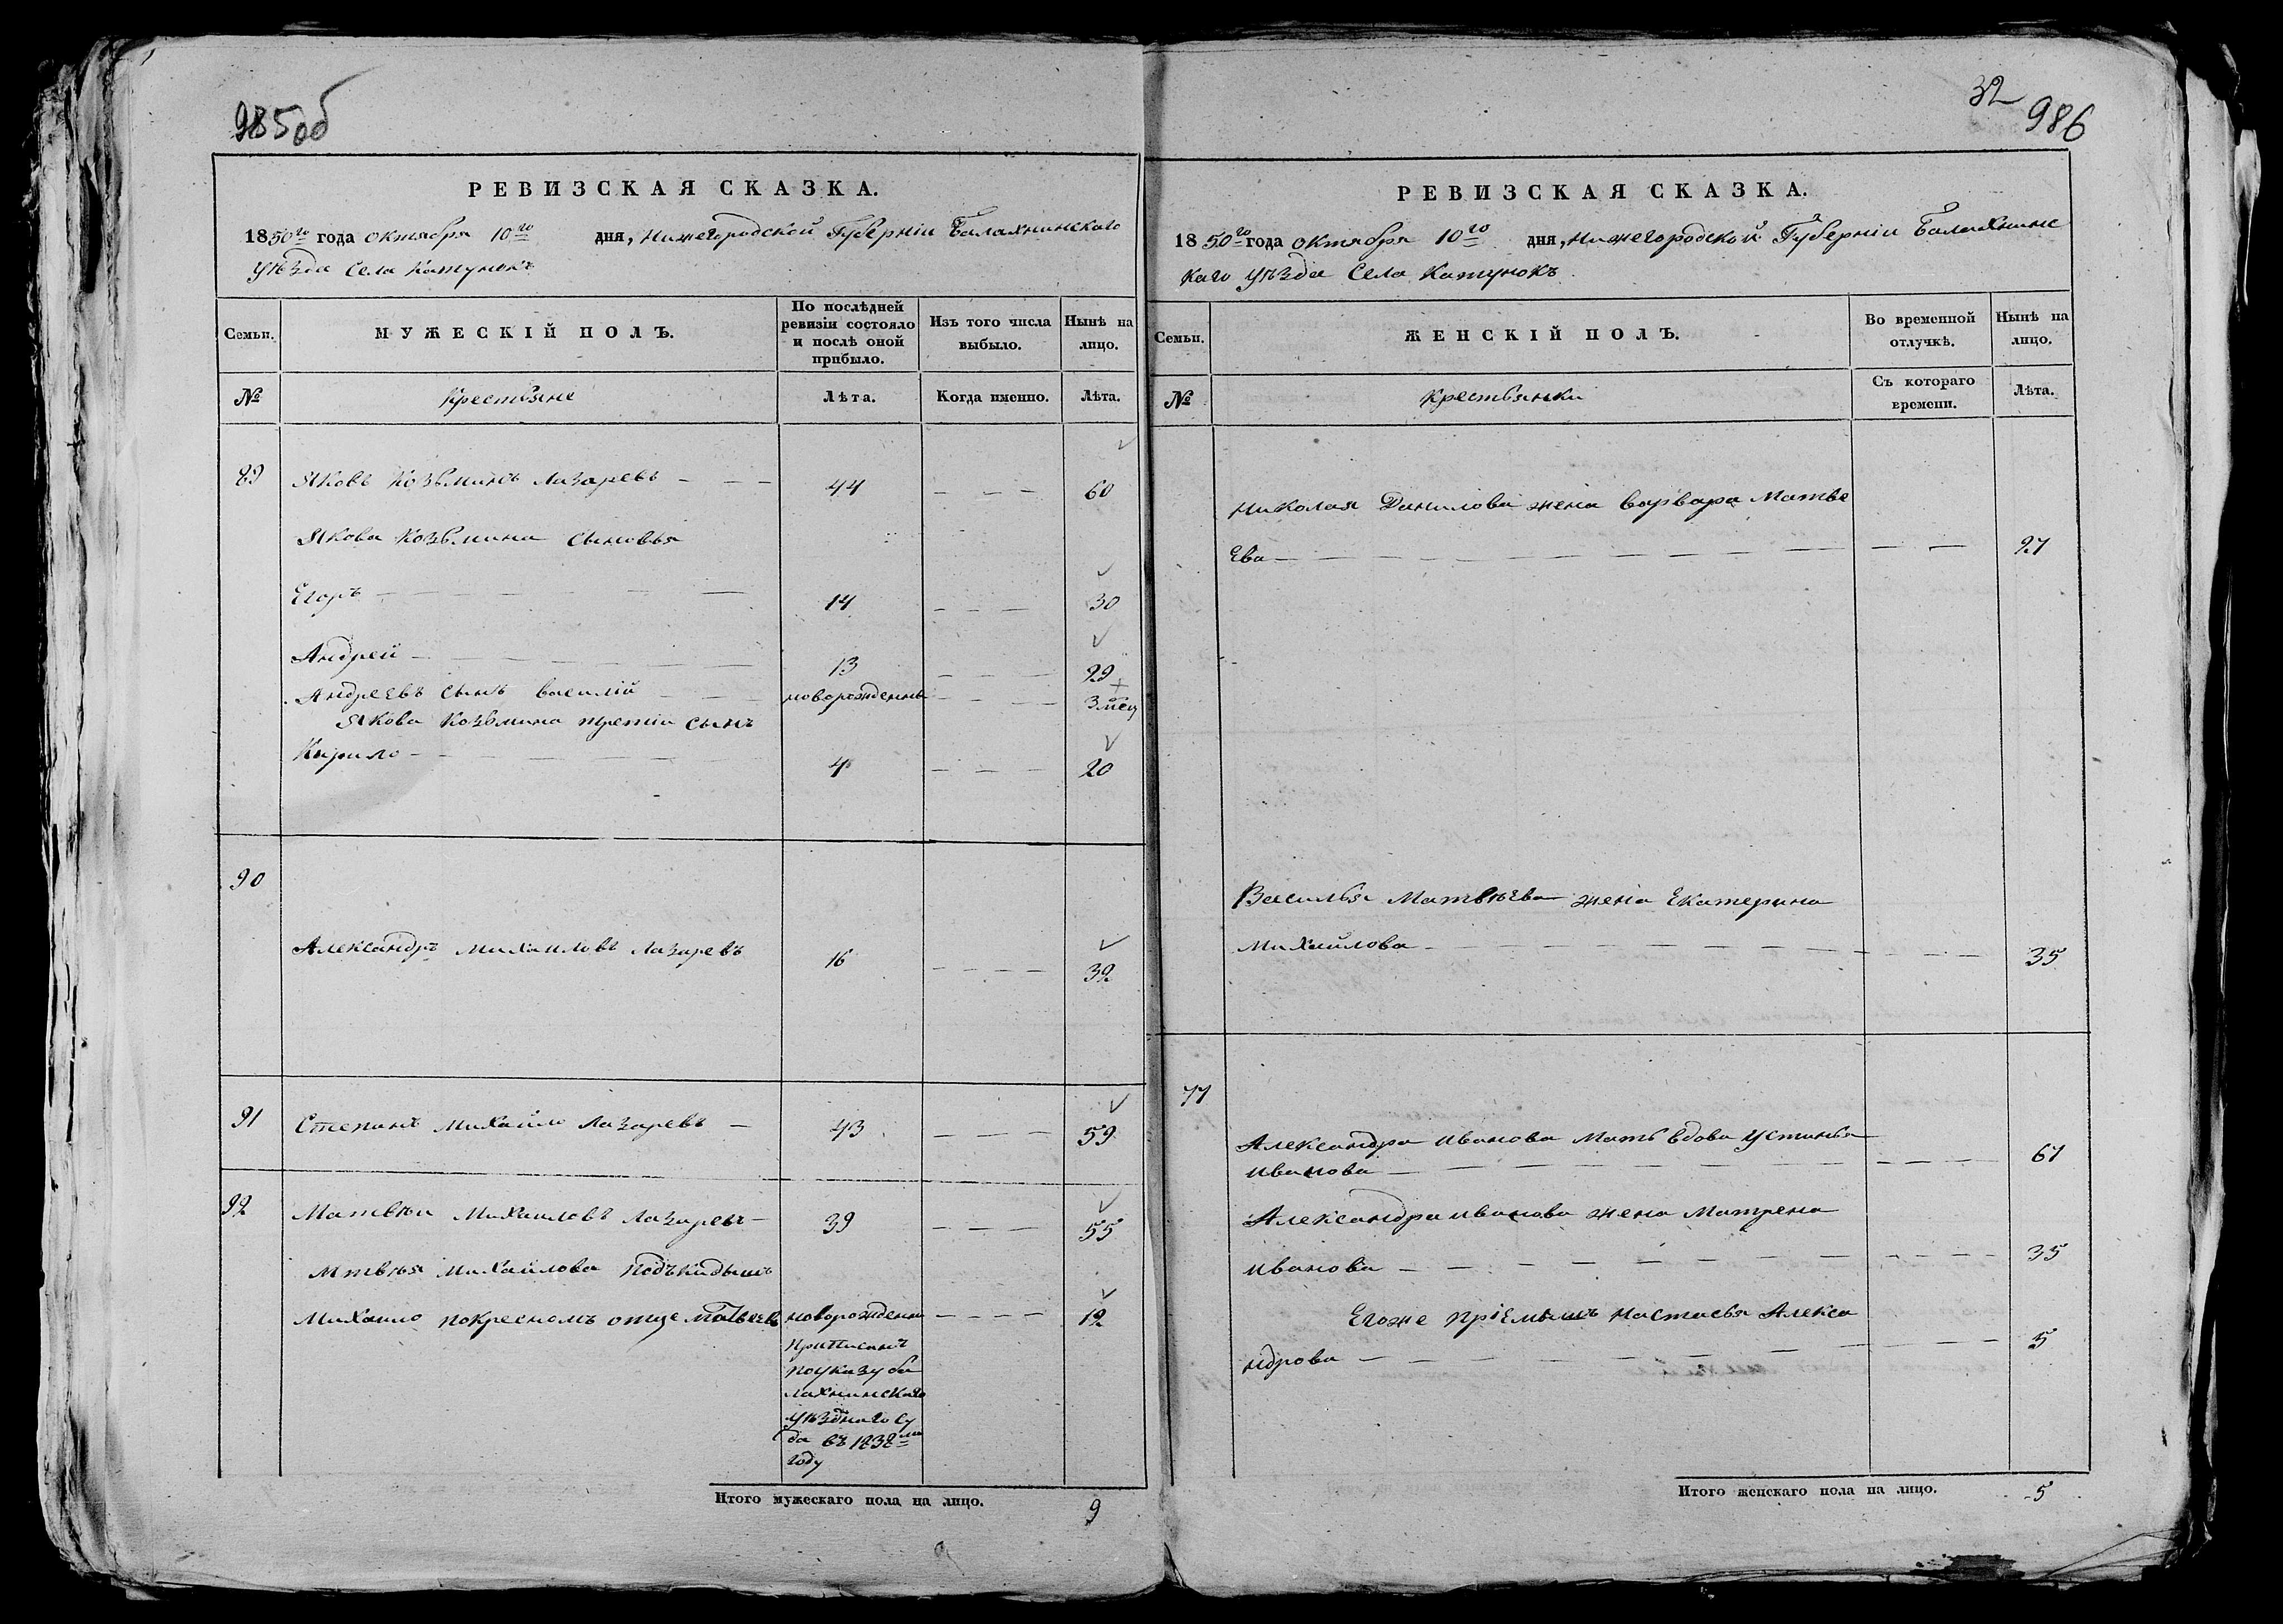 985об
РЕВИЗСКАЯ СКАЗКА.
1850го года октября 10го дня, Нижегородской Губерніи Балахнинскаго
уѣзда Села Катунокъ
Семьи.
МУЖЕСКІЙ ПОЛЪ.
По послѣдней
ревизіи состояло
и послѣ оной
прибыло.
Изъ того числа
выбыло.
Нынѣ на
лицо.
№
Крестьяне
Лѣта.
Когда именно.
Лѣта.
89 Яковъ Козьминъ Лазаревъ — — — 44 — — — 60
Якова Козьмина сыновья
Егоръ — — — — 14 — — — 30
Андрей — — — — 13 — — — 29
Андреевъ сынъ Василій — — — новорожденны — — — 3 мец
Якова Козьмина третіи сынъ
Кирило — — — — 4 — — — 20
90
Александръ Михаиловъ Лазаревъ 16 — — — — 32
91 Степанъ Михайло Лазаревъ — 43 — — — 59
92 Матвѣи Михаиловъ Лазаревъ — 39 — — — 55
Мтвѣя Михайлова подъкидышъ
Михаило покресномъ отце Матвеевъ новорожденн — — — — 12
приписанъ
поуказу ба
лахнинскаго
уѣзднаго су
да въ 1838мъ
году
Итого мужескаго пола на лицо. 9
32
986
РЕВИЗСКАЯ СКАЗКА.
1850го года октября 10го дня, Нижегородской Губерніи Балахнинс
каго уѣзда Села Катунокъ
Семьи.
ЖЕНСКІЙ ПОЛЪ.
Во временной
отлучкѣ.
Нынѣ на
лицо.
№
Крестьянки
Съ котораго
времени.
Лѣта.
Николая Данилова жена Варвара Матве
ева — — — — — — 27
Василья Матвѣева жена Екатерина
Михайлова — — — — — — 35
77
Александра Иванова мать вдова Устинья
Иванова — — — — — — 67
Александра Иванова жена Матрена
Иванова — — — — — — 35
Егоже пріемышъ Настасья Алекса
ндрова — — — — — — 5
Итого женскаго пола на лицо. 5